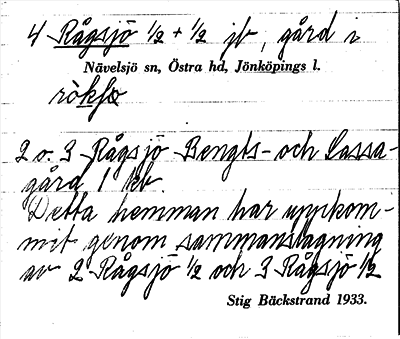 4 Rågsjö ½ + ½ jb, gård i
Nävelsjö sn, Östra hd, Jönköpings l.
2 o. 3 Rågsjö Bengts- och Lassa-
gård 1 kb.
Detta hemman har uppkom-
mit genom sammanslagning
av 2 Rågsjö ½ och 3 Rågsjö ½
Stig Bäckstrand 1933.